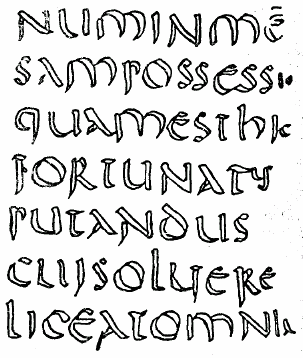 NUMINMĒ
SAMPOSSESSIO
QUAMESTHIC
FORTUNATUS
PUTANDUS
CUISOLIUERE
LICEATOMNIA